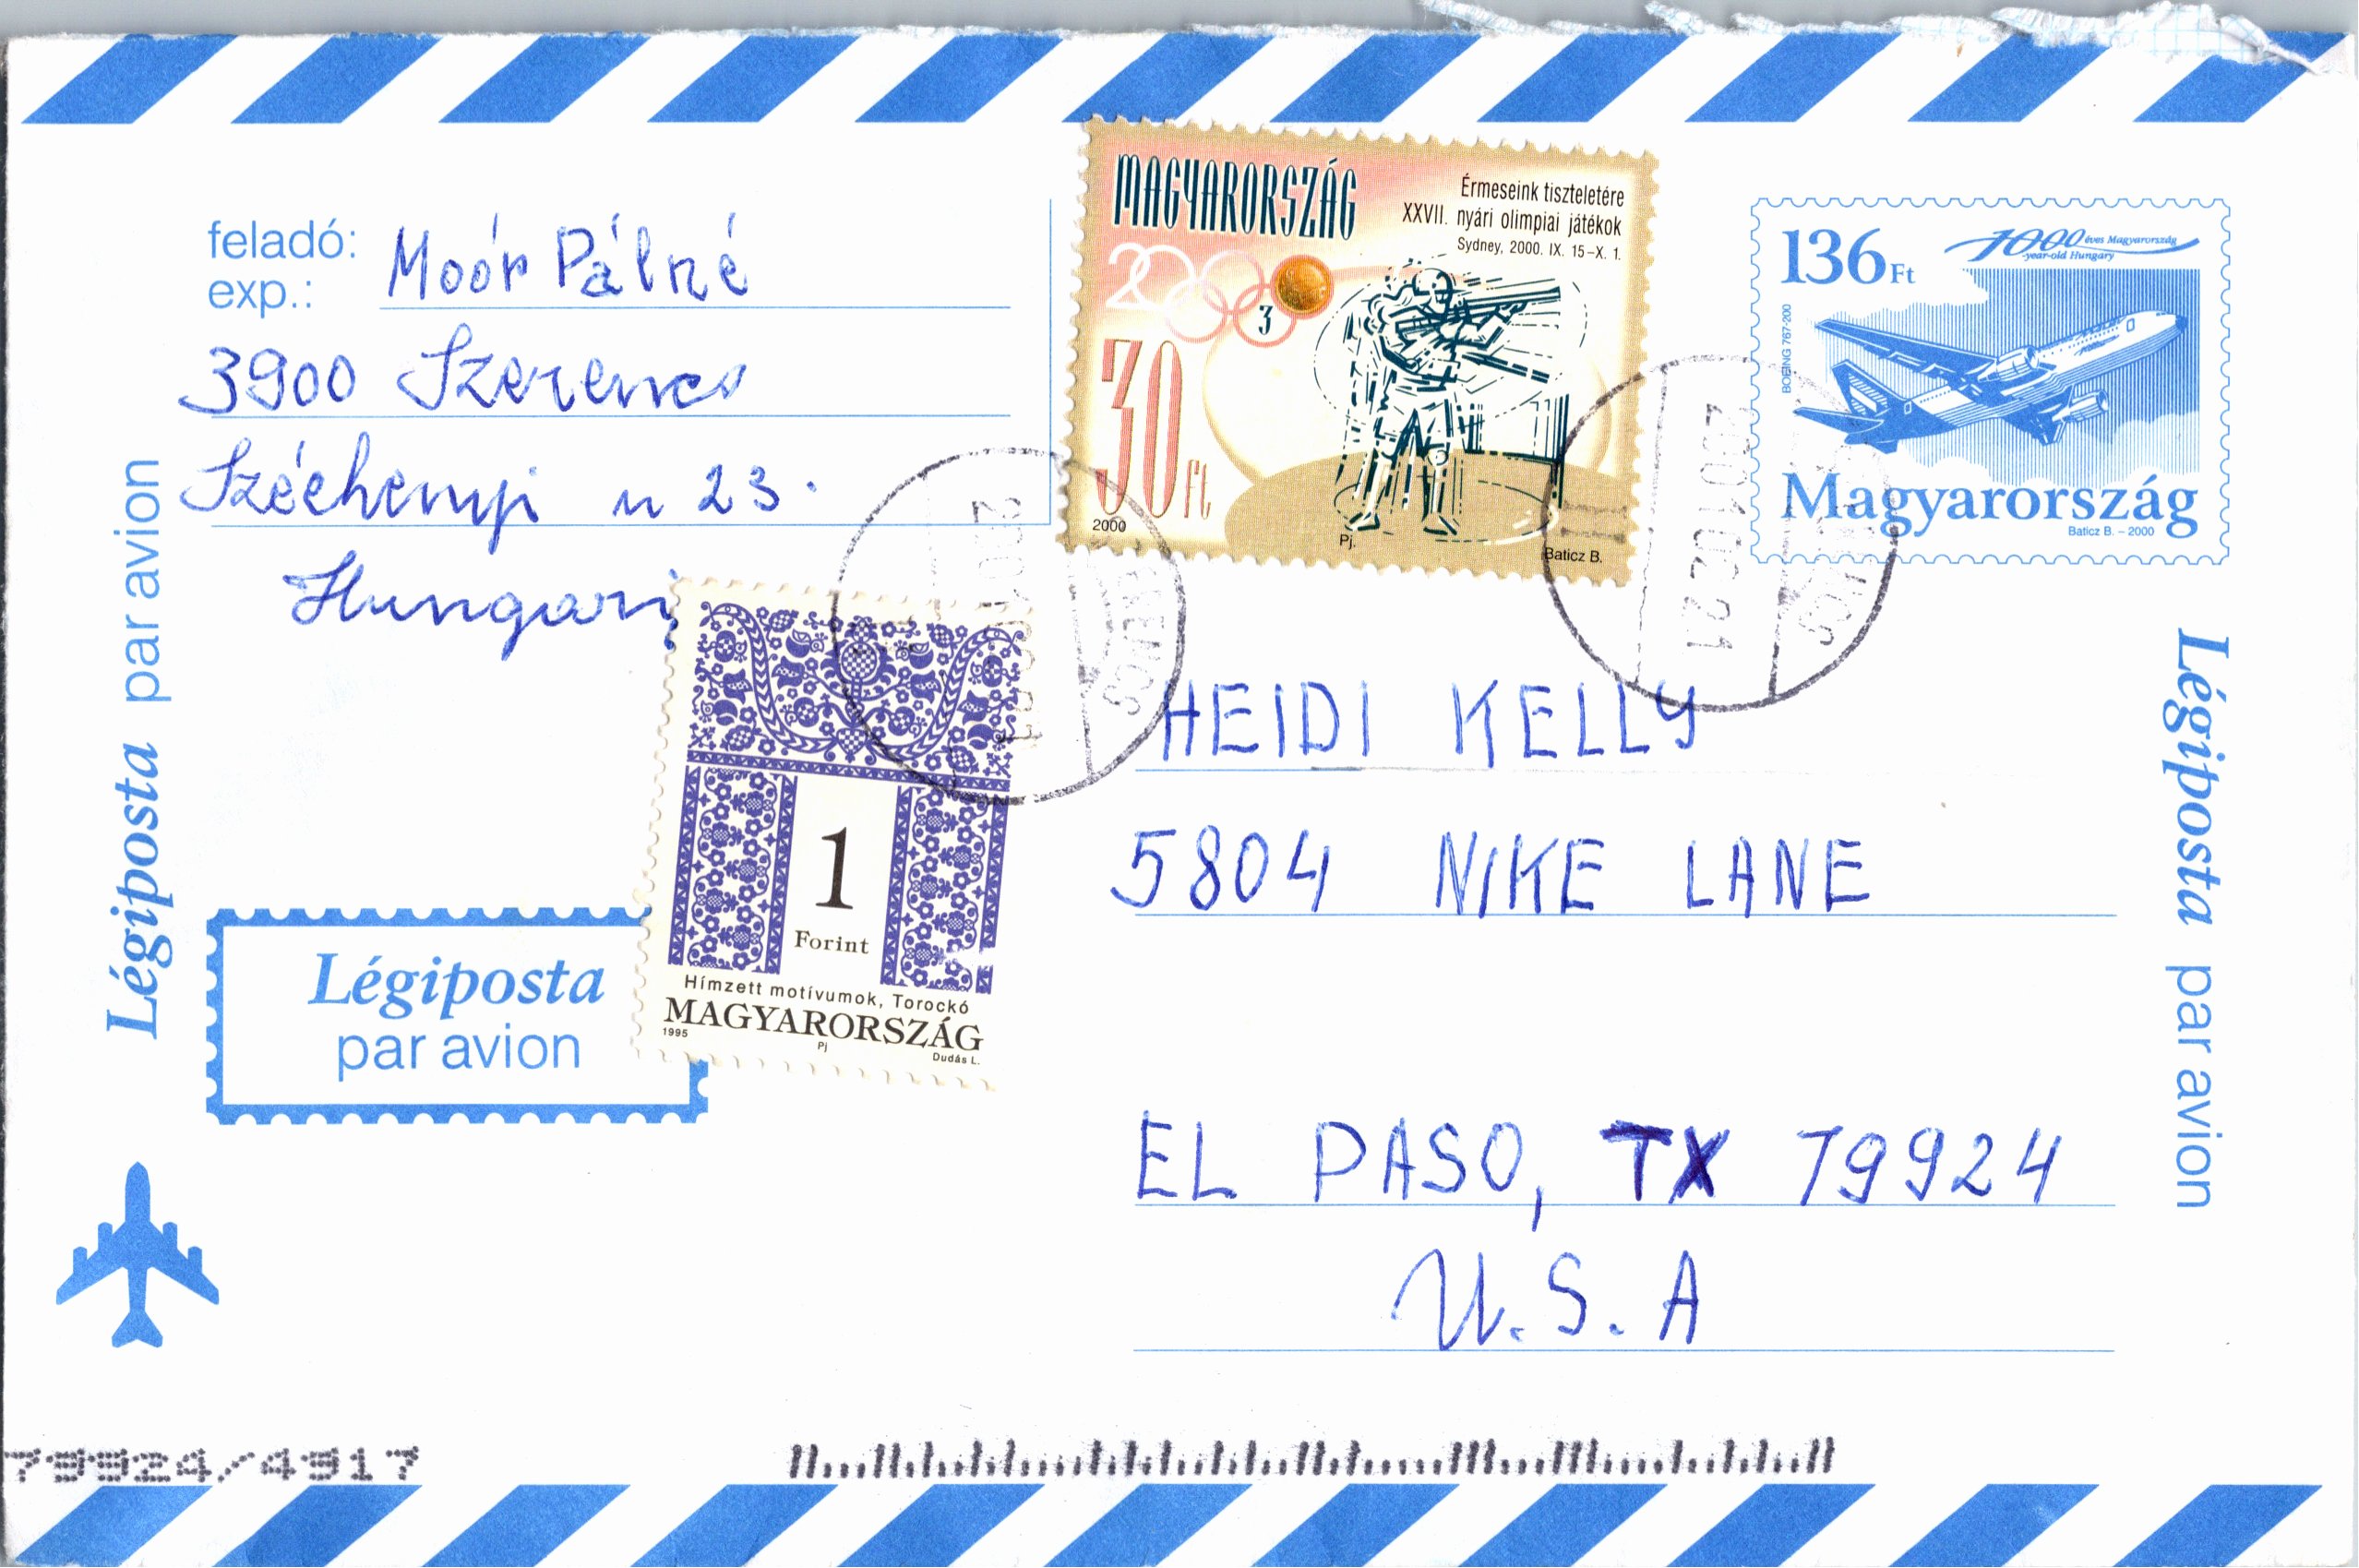 feladó:
exp.:
Moór Pálné
3900 Szerencs
Széchenyi u 23.
Hungary
MAGYARORSZÁG
Érmeseink tiszteletére
XXVII. nyári olimpiai játékok
Sydney, 2000. IX. 15–X. 1.
2000
3
30 Ft
2000
Pj.
Baticz B.
136 Ft
1000 éves Magyarország
-year-old Hungary
BOEING 767-200
Magyarország
Baticz B. – 2000
2001 02 21
1
Forint
Hímzett motívumok, Torockó
MAGYARORSZÁG
1995
Pj
Dudás L.
Légiposta par avion
Légiposta
par avion
Légiposta par avion
HEIDI KELLY
5804 NIKE LANE
EL PASO, TX 79924
U.S.A
79924/4917